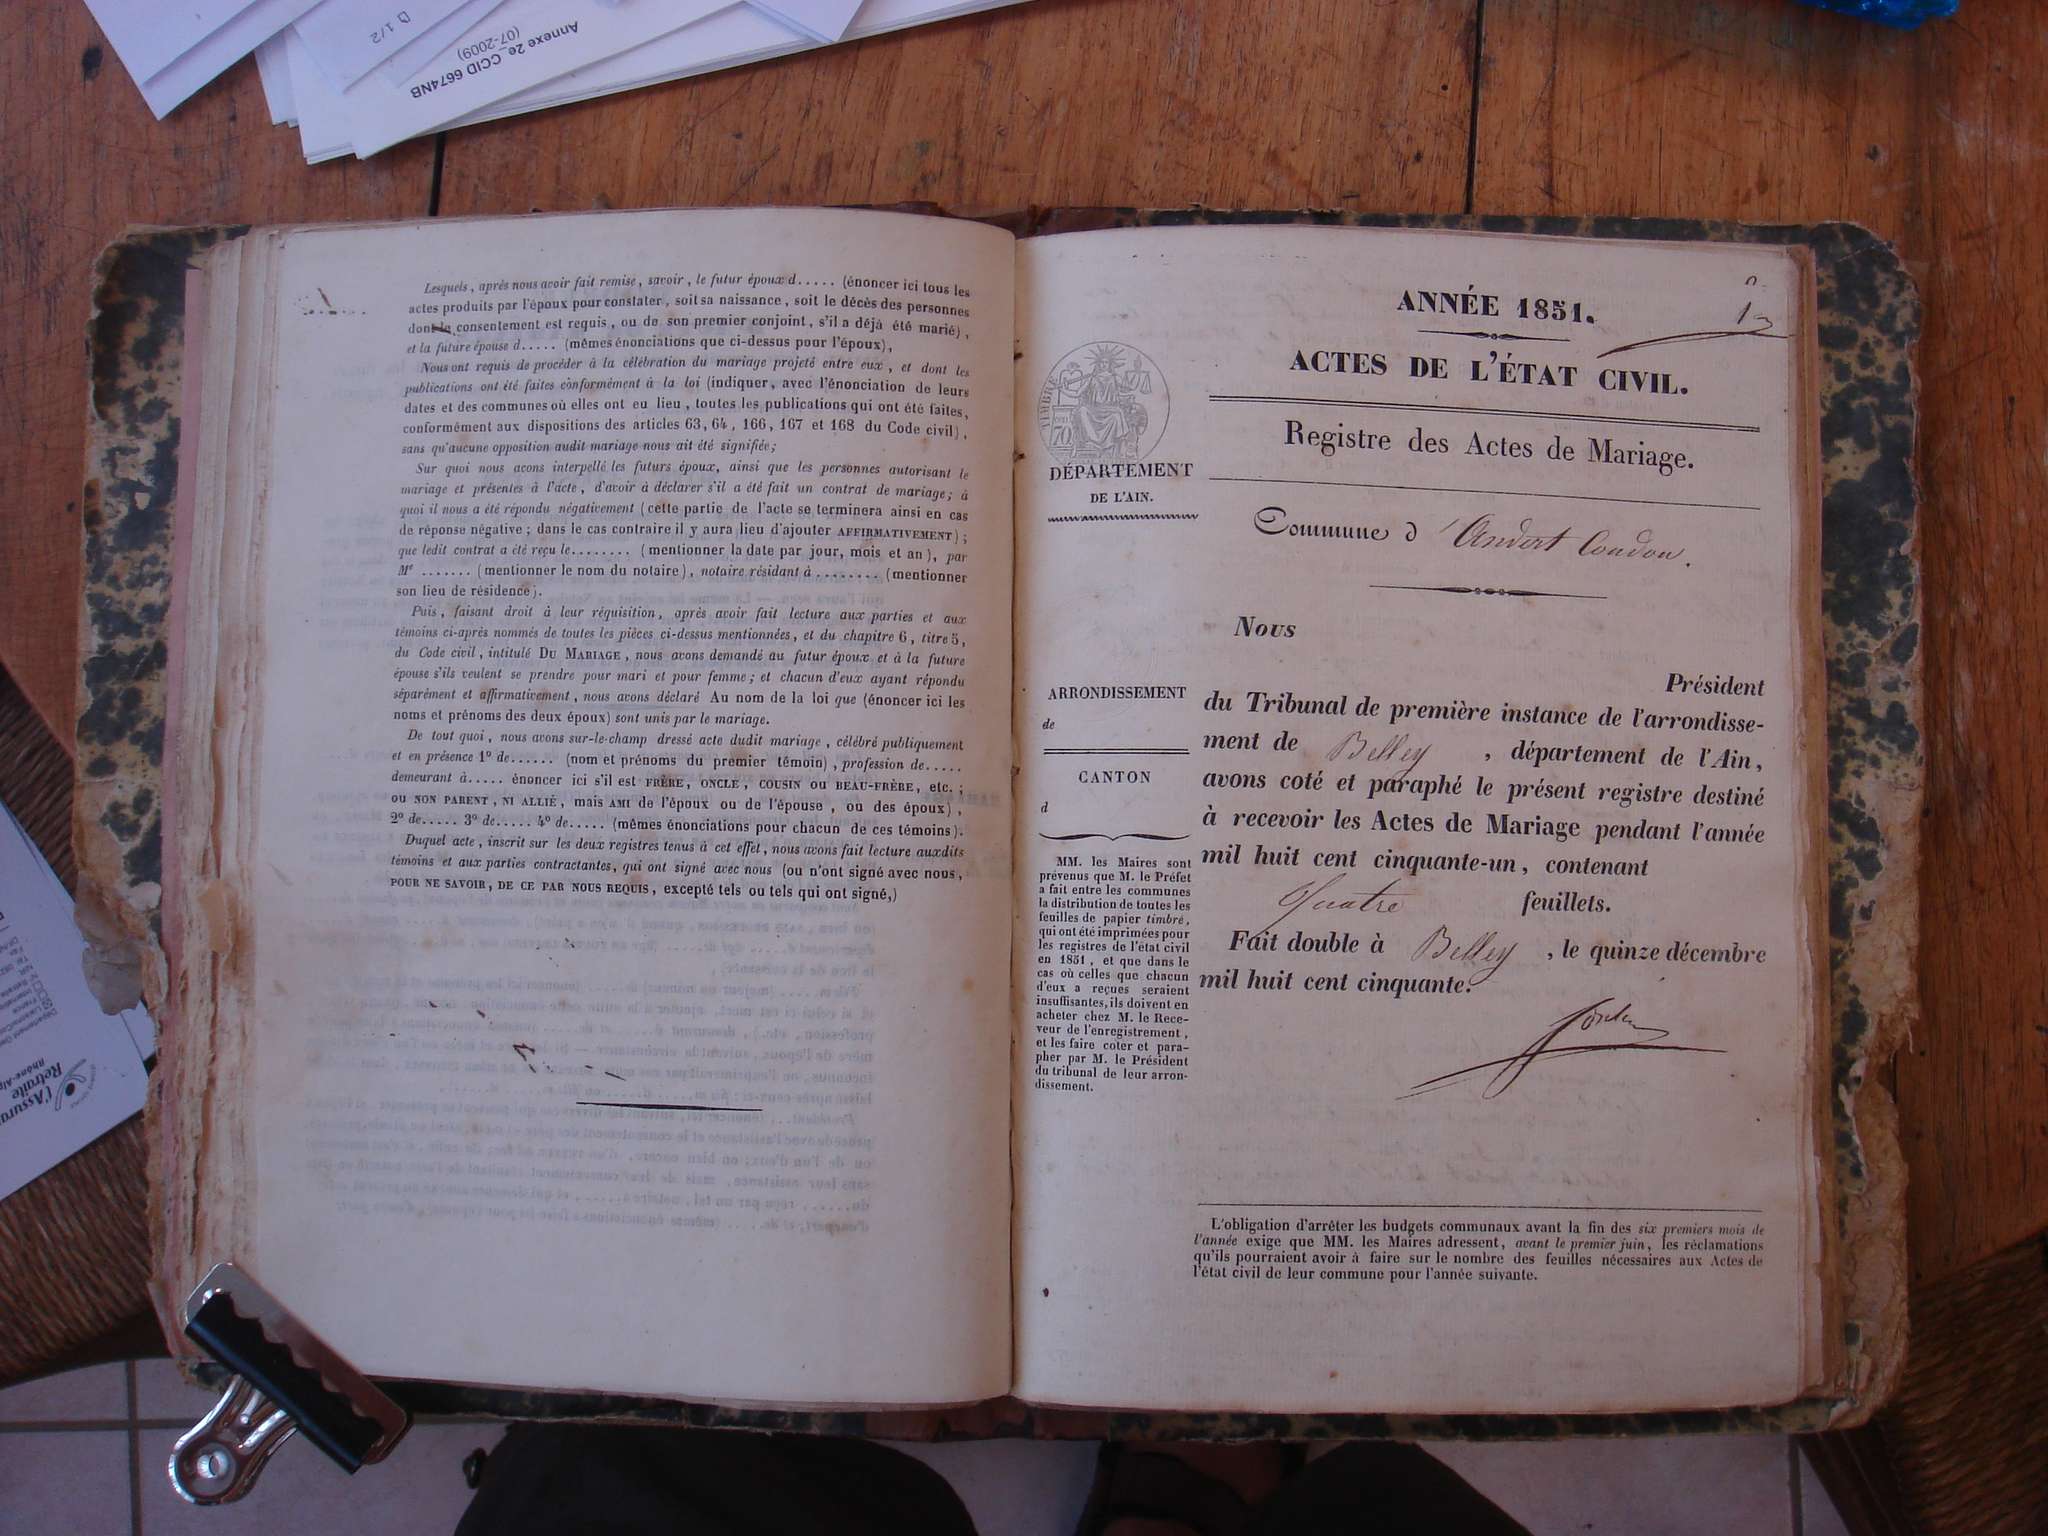 D 1/2
Annexe 2e_CCID 6674NB
(07-2009)
Lesquels, après nous avoir fait remise, savoir, le futur époux d..... (énoncer ici tous les
actes produits par l'époux pour constater, soit sa naissance, soit le décès des personnes
dont le consentement est requis, ou de son premier conjoint, s'il a déjà été marié),
et la future épouse d..... (mêmes énonciations que ci-dessus pour l'époux),
Nous ont requis de procéder à la célébration du mariage projeté entre eux, et dont les
publications ont été faites conformément à la loi (indiquer, avec l'énonciation de leurs
dates et des communes où elles ont eu lieu, toutes les publications qui ont été faites,
conformément aux dispositions des articles 63, 64, 166, 167 et 168 du Code civil),
sans qu'aucune opposition audit mariage nous ait été signifiée;
Sur quoi nous avons interpellé les futurs époux, ainsi que les personnes autorisant le
mariage et présentes à l'acte, d'avoir à déclarer s'il a été fait un contrat de mariage; à
quoi il nous a été répondu négativement (cette partie de l'acte se terminera ainsi en cas
de réponse négative; dans le cas contraire il y aura lieu d'ajouter AFFIRMATIVEMENT);
que ledit contrat a été reçu le........ (mentionner la date par jour, mois et an), par
Me ....... (mentionner le nom du notaire), notaire résidant à ........ (mentionner
son lieu de résidence).
Puis, faisant droit à leur réquisition, après avoir fait lecture aux parties et aux
témoins ci-après nommés de toutes les pièces ci-dessus mentionnées, et du chapitre 6, titre 5,
du Code civil, intitulé DU MARIAGE, nous avons demandé au futur époux et à la future
épouse s'ils veulent se prendre pour mari et pour femme; et chacun d'eux ayant répondu
séparément et affirmativement, nous avons déclaré Au nom de la loi que (énoncer ici les
noms et prénoms des deux époux) sont unis par le mariage.
De tout quoi, nous avons sur-le-champ dressé acte dudit mariage, célébré publiquement
et en présence 1º de...... (nom et prénoms du premier témoin), profession de.....
demeurant à..... énoncer ici s'il est FRÈRE, ONCLE, COUSIN OU BEAU-FRÈRE, etc.;
ou NON PARENT, NI ALLIÉ, mais AMI de l'époux ou de l'épouse, ou des époux),
2º de..... 3º de..... 4º de..... (mêmes énonciations pour chacun de ces témoins).
Duquel acte, inscrit sur les deux registres tenus à cet effet, nous avons fait lecture auxdits
témoins et aux parties contractantes, qui ont signé avec nous (ou n'ont signé avec nous,
POUR NE SAVOIR, DE CE PAR NOUS REQUIS, excepté tels ou tels qui ont signé,)
ANNÉE 1851.
ACTES DE L'ÉTAT CIVIL.
Registre des Actes de Mariage.
TIMBRE
70
DÉPARTEMENT
DE L'AIN.
Commune d'Andert Condon.
Nous
Président
du Tribunal de première instance de l'arrondisse-
ment de Belley, département de l'Ain,
avons coté et paraphé le présent registre destiné
à recevoir les Actes de Mariage pendant l'année
mil huit cent cinquante-un, contenant
Quatre feuillets.
Fait double à Belley, le quinze décembre
mil huit cent cinquante.
ARRONDISSEMENT
de
CANTON
d
MM. les Maires sont
prévenus que M. le Préfet
a fait entre les communes
la distribution de toutes les
feuilles de papier timbré,
qui ont été imprimées pour
les registres de l'état civil
en 1851, et que dans le
cas où celles que chacun
d'eux a reçues seraient
insuffisantes, ils doivent en
acheter chez M. le Rece-
veur de l'enregistrement,
et les faire coter et para-
pher par M. le Président
du tribunal de leur arron-
dissement.
L'obligation d'arrêter les budgets communaux avant la fin des six premiers mois de
l'année exige que MM. les Maires adressent, avant le premier juin, les réclamations
qu'ils pourraient avoir à faire sur le nombre des feuilles nécessaires aux Actes de
l'état civil de leur commune pour l'année suivante.
l'Assura
Retraite
Rhône-Alp